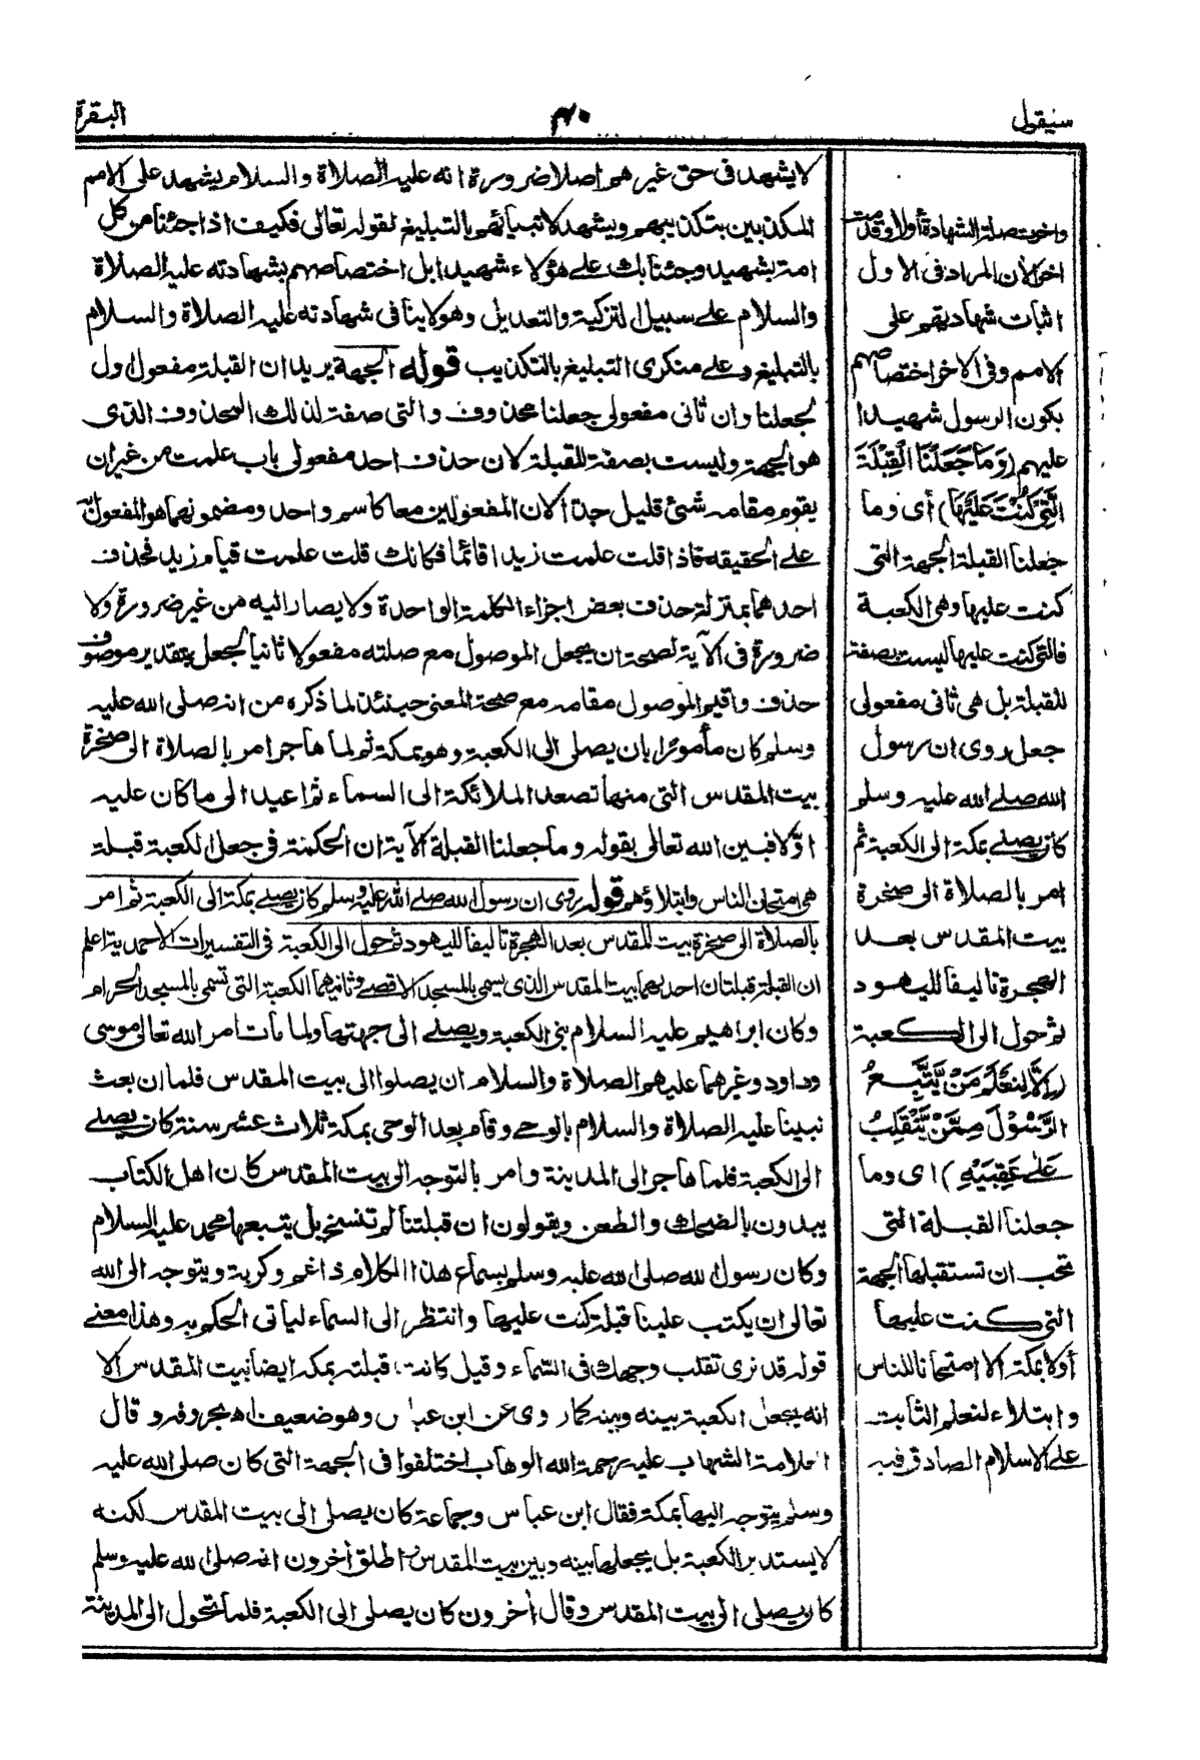 سيقول
٤٠
البقرة
واخرت صلة الشهادة أولا وقدمت
اخرا لان المراد فى الاول
اثبات شهادتهم على
الامم وفى الاخر اختصاصهم
بكون الرسول شهيدا
عليهم (وَمَا جَعَلْنَا الْقِبْلَةَ
الَّتِىْ كُنْتَ عَلَيْهَا) أى وما
جعلنا القبلة الجهة التى
كنت عليها وهى الكعبة
فالتى كنت عليها ليست بصفة
للقبلة بل هى ثانى مفعولى
جعل روى ان رسول
الله صلى الله عليه وسلم
كان يصلى بمكة الى الكعبة ثم
امر بالصلاة الى صخرة
بيت المقدس بعد
الهجرة تاليفا لليهود
ثم حول الى الكعبة
(اِلَّا لِنَعْلَمَ مَنْ يَّتَّبِعُ
الرَّسُوْلَ مِمَّنْ يَّنْقَلِبُ
عَلٰى عَقِبَيْهِ) اى وما
جعلنا القبلة التى
تحب ان تستقبلها الجهة
التى كنت عليها
أولا بمكة الا امتحانا للناس
وابتلاء لنعلم الثابت
على الاسلام الصادق فيه
لا يشهد فى حق غيرهم اصلا ضرورة انه عليه الصلاة والسلام يشهد على الامم
المكذبين بتكذيبهم ويشهد لانبيائهم بالتبليغ لقوله تعالى فكيف اذا جئنا من كل
امة بشهيد وجئنا بك على هؤلاء شهيدا بل اختصاصهم بشهادته عليه الصلاة
والسلام على سبيل التزكية والتعديل وهو لا ينافى شهادته عليه الصلاة والسلام
بالتبليغ وعلى منكرى التبليغ بالتكذيب قوله الجهة يريد ان القبلة مفعول اول
لجعلنا وان ثانى مفعولى جعلنا محذوف والتى صفة لذلك المحذوف الذى
هو الجهة وليست بصفة للقبلة لان حذف احد مفعولى باب علمت من غير ان
يقوم مقامه شئ قليل جدا لان المفعولين معا كاسم واحد ومضمونهما هو المفعول به
على الحقيقة فاذا قلت علمت زيدا قائما فكانك قلت علمت قيام زيد فحذف
احدهما بمنزلة حذف بعض اجزاء الكلمة الواحدة ولا يصار اليه من غير ضرورة ولا
ضرورة فى الآية لصحة ان يجعل الموصول مع صلته مفعولا ثانيا لجعل بتقدير موصوف
حذف واقيم الموصول مقامه مع صحة المعنى حينئذ لما ذكره من انه صلى الله عليه
وسلم كان مأمورا بان يصلى الى الكعبة وهو بمكة ثم لما هاجر امر بالصلاة الى صخرة
بيت المقدس التى منها تصعد الملائكة الى السماء ثم اعيد الى ما كان عليه
اوّلا فبين الله تعالى بقوله وما جعلنا القبلة الآية ان الحكمة فى جعل الكعبة قبلة
هى امتحان الناس وابتلاؤهم قوله روى ان رسول الله صلى الله عليه وسلم كان يصلى بمكة الى الكعبة ثم امر
بالصلاة الى صخرة بيت المقدس بعد الهجرة تاليفا لليهود ثم حول الى الكعبة فى التفسيرات الاحمدية اعلم
ان القبلة قبلتان احدهما بيت المقدس الذى يسمى بالمسجد الاقصى وثانيهما الكعبة التى تسمى بالمسجد الحرام
وكان ابراهيم عليه السلام بنى الكعبة ويصلى الى جهتها ولما مات امر الله تعالى موسى
وداود وغيرهما عليهم الصلاة والسلام ان يصلوا الى بيت المقدس فلما ان بعث
نبينا عليه الصلاة والسلام بالوحى وقام بعد الوحى بمكة ثلاث عشر سنة كان يصلى
الى الكعبة فلما هاجر الى المدينة وامر بالتوجه الى بيت المقدس كان اهل الكتاب
يبدون بالضحك والطعن ويقولون ان قبلتنا لم تنسخ بل يتبعها محمد عليه السلام
وكان رسول الله صلى الله عليه وسلم بسماع هذا الكلام ذا غم وكربة ويتوجه الى الله
تعالى ان يكتب علينا قبلة كنت عليها وانتظر الى السماء لياتى الحكم به وهذا معنى
قوله قد نرى تقلب وجهك فى السّماء وقيل كانت قبلته بمكه ايضا بيت المقدس الا
انه يجعل الكعبة بينه وبينه كما روى عن ابن عباس وهو ضعيف اه بحروفه وقال
العلامة الشهاب عليه رحمة الله الوهاب اختلفوا فى الجهة التى كان صلى الله عليه
وسلم يتوجه اليها بمكة فقال ابن عباس وجماعة كان يصلى الى بيت المقدس لكنه
لا يستدبر الكعبة بل يجعلها بينه وبين بيت المقدس واطلق أخرون انه صلى الله عليه وسلم
كان يصلى الى بيت المقدس وقال أخرون كان يصلى الى الكعبة فلما تحول الى المدينة